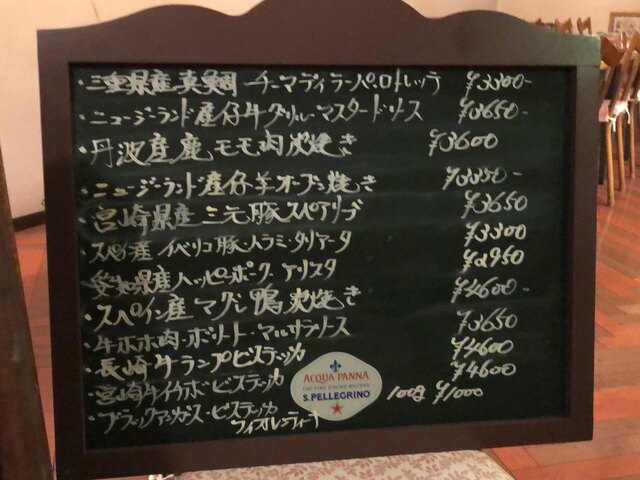 ・三重県産真鯛 チーマディラーパ・ロトレッテ ¥3300-
・ニュージーランド産仔牛グリルマスタードソース ¥3650-
・丹波産鹿モモ肉炭焼き ¥3600
・ニュージーランド産仔羊オーブン焼き
・宮崎県産三元豚スペアリブ ¥3650
スペイン産イベリコ豚ハラミ・タリアータ ¥3300
・愛知県産ハッピーポーク アリスタ ¥2950
・スペイン産マグレ鴨炭焼き ¥4600-
・牛ホホ肉・ボリート・マルサラソース ¥3650
・長崎牛ランプビステッカ ¥4600
・宮崎牛イチボ ビステッカ ¥4600
・ブラックアンガス・ビステッカ 100g ¥1000
フィオレンティーナ
ACQUA PANNA
THE FINE DINING WATERS
S.PELLEGRINO